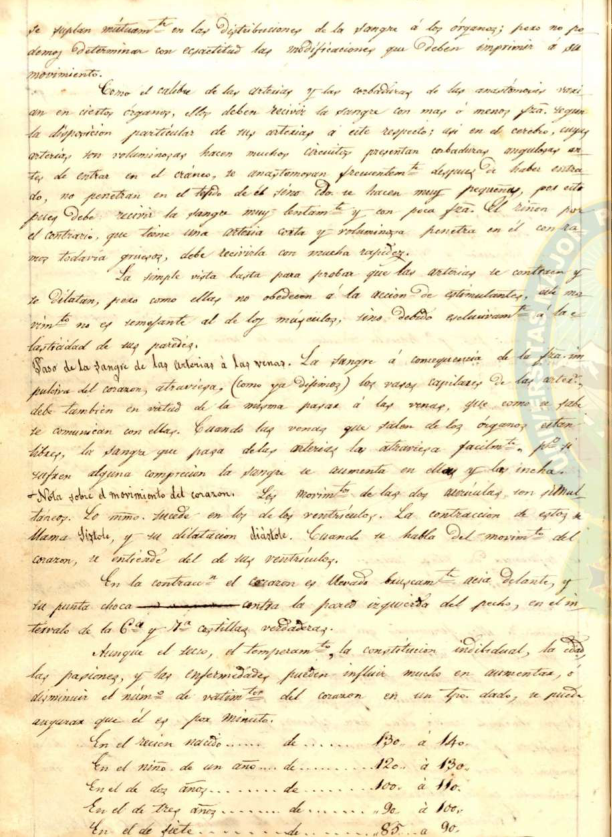 se suplan mútuamte en las distribuciones de la sangre á los órganos; pero no po
demos determinar con ecsactitud las modificaciones que deben imprimir á su
movimiento.
Como el calibre de las arterias y las corbaduras de las anastómosis vari
an en ciertos órganos, ellos deben recivir la sangre con mas ó menos fza. segun
la disposicion particular de sus arterias á este respecto; asi en el cerebro, cuyas
arterias son voluminosas hacen muchos circuitos presentan corbaduras angulosas an
tes de entrar en el cráneo, se anastomosan frecuentemte despues de haber entra
do, no penetran en el tejido de él sino cdo. se hacen muy pequeñas, por esto
pues debe recivir la sangre muy lentamte y con poca fza. El riñon por
el contrario, que tiene una arteria corta y voluminosa penetra en él con ra
mos todavia gruesos, debe recivirla con mucha rapidez.
La simple vista basta para probar que las arterias se contraen y
se dilatan, pero como ellas no obedecen á la accion de estimulantes, este mo
vimto no es semejante al de los músculos, sino debido esclusivamte á la e
lasticidad de sus paredes.
Paso de la sangre de las arterias á las venas. La sangre á consequencia de la fza. im
pulsiva del corazon, atraviesa, (como ya dijimos) los vasos capilares de las arters.
debe tambien en virtud de la misma pasar á las venas, que como se sabe
se comunican con ellas. Cuando las venas que salen de los órganos están
libres, la sangre que pasa de las arterias las atraviesa facilmte, pro si
sufren alguna compresion la sangre se aumenta en ellas y las incha.
+Nota sobre el movimiento del corazon. Los movimtos de las dos aurículas son simul
táneos. Lo mmo. sucede en los de los ventrículos. La contraccion de estos se
llama sístole, y su dilatacion diástole. Cuando se habla del movimto del
corazon, se entiende del de sus ventrículos.
En la contraccn el corazon es llevado bruscamte acia delante, y
su punta choca contra la pared izquierda del pecho, en el in
tervalo de la 6a y 7a costillas verdaderas.
Aunque el secso, el temperamto, la constitucion individual, la edad,
las pasiones, y las enfermedades pueden influir mucho en aumentar, ó
disminuir el numo de vatimtos del corazon en un tpo. dado, se puede
asegurar que él es por minuto.
En el recien nacido...... de ....... 130. á 140.
En el niño de un año... de ....... 120. á 130.
En el de dos años....... de ....... 100. á 110.
En el de tres años ...... de ....... 90. á 100.
En el de siete ........... de ....... 85. á 90.